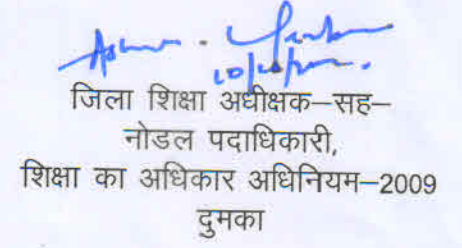 जिला शिक्षा अधीक्षक–सह–
नोडल पदाधिकारी,
शिक्षा का अधिकार अधिनियम–2009
दुमका